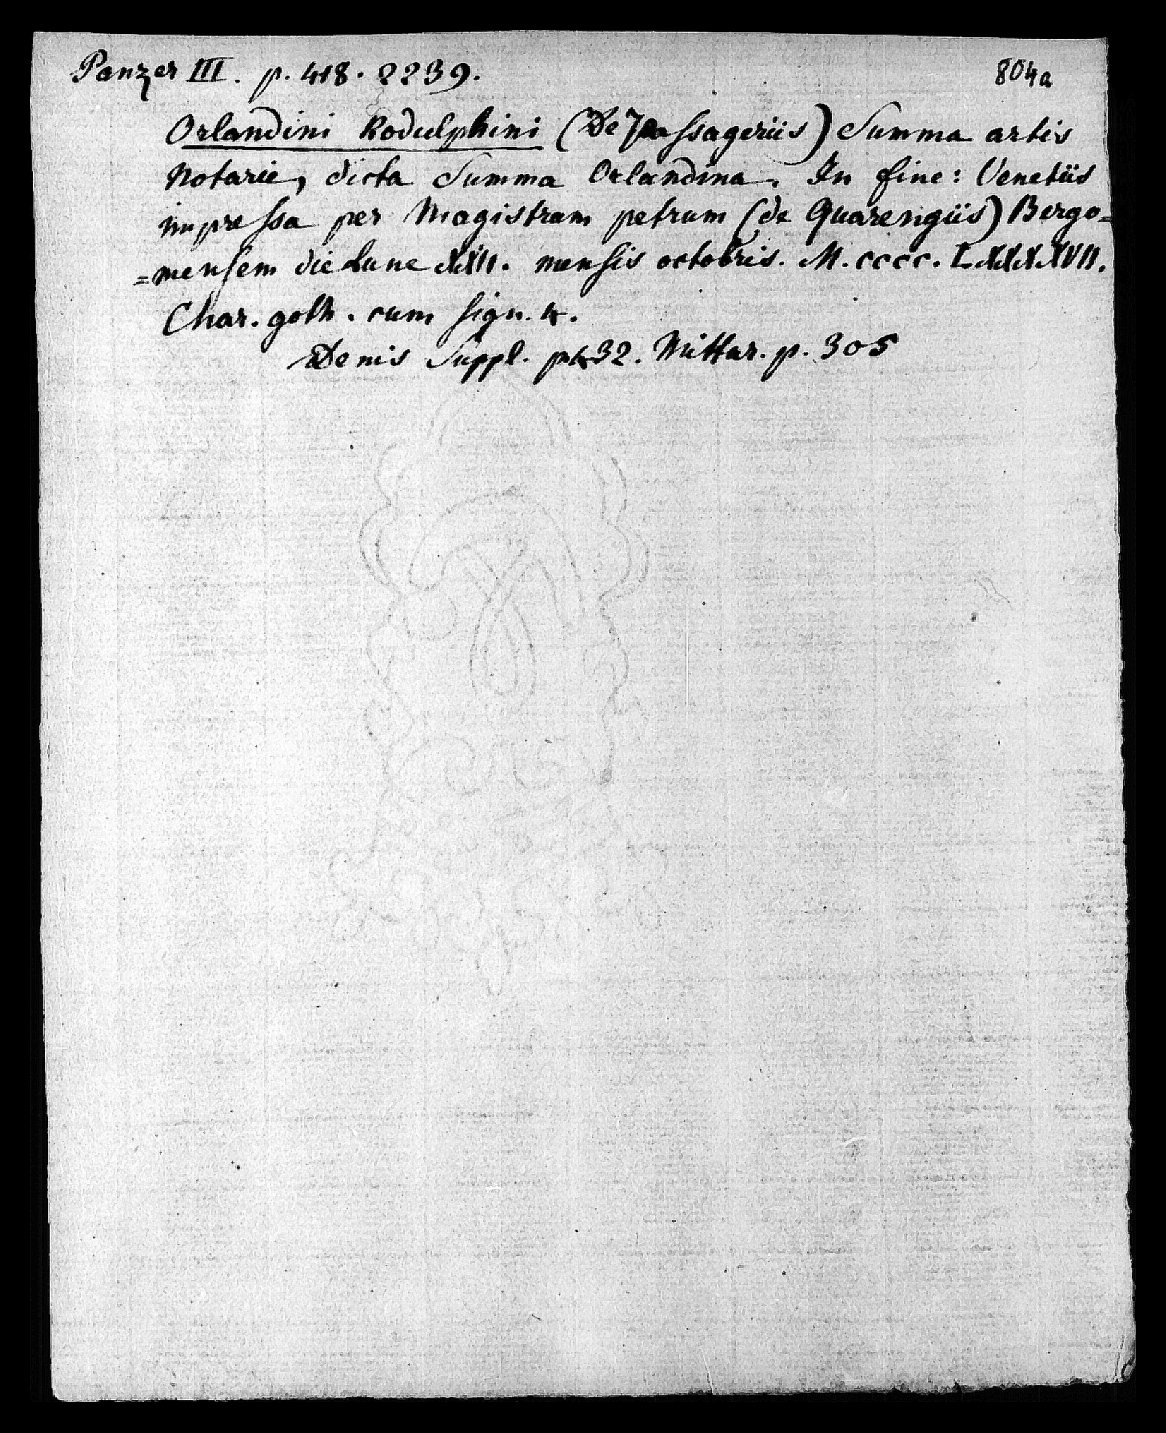 Panzer III. p. 418. 2239.
804a
Orlandini Rodulphini (De Passageriis) Summa artis
Notarie, dicta Summa Orlandina. In fine: Venetiis
impressa per Magistrum petrum (de Quarengiis) Bergo=
=mensem die Lune XXII. mensis octobris. M. cccc. LXXXXVII.
Char. goth. cum sign. 4.
Denis Suppl. p. 432. Mittar. p. 305